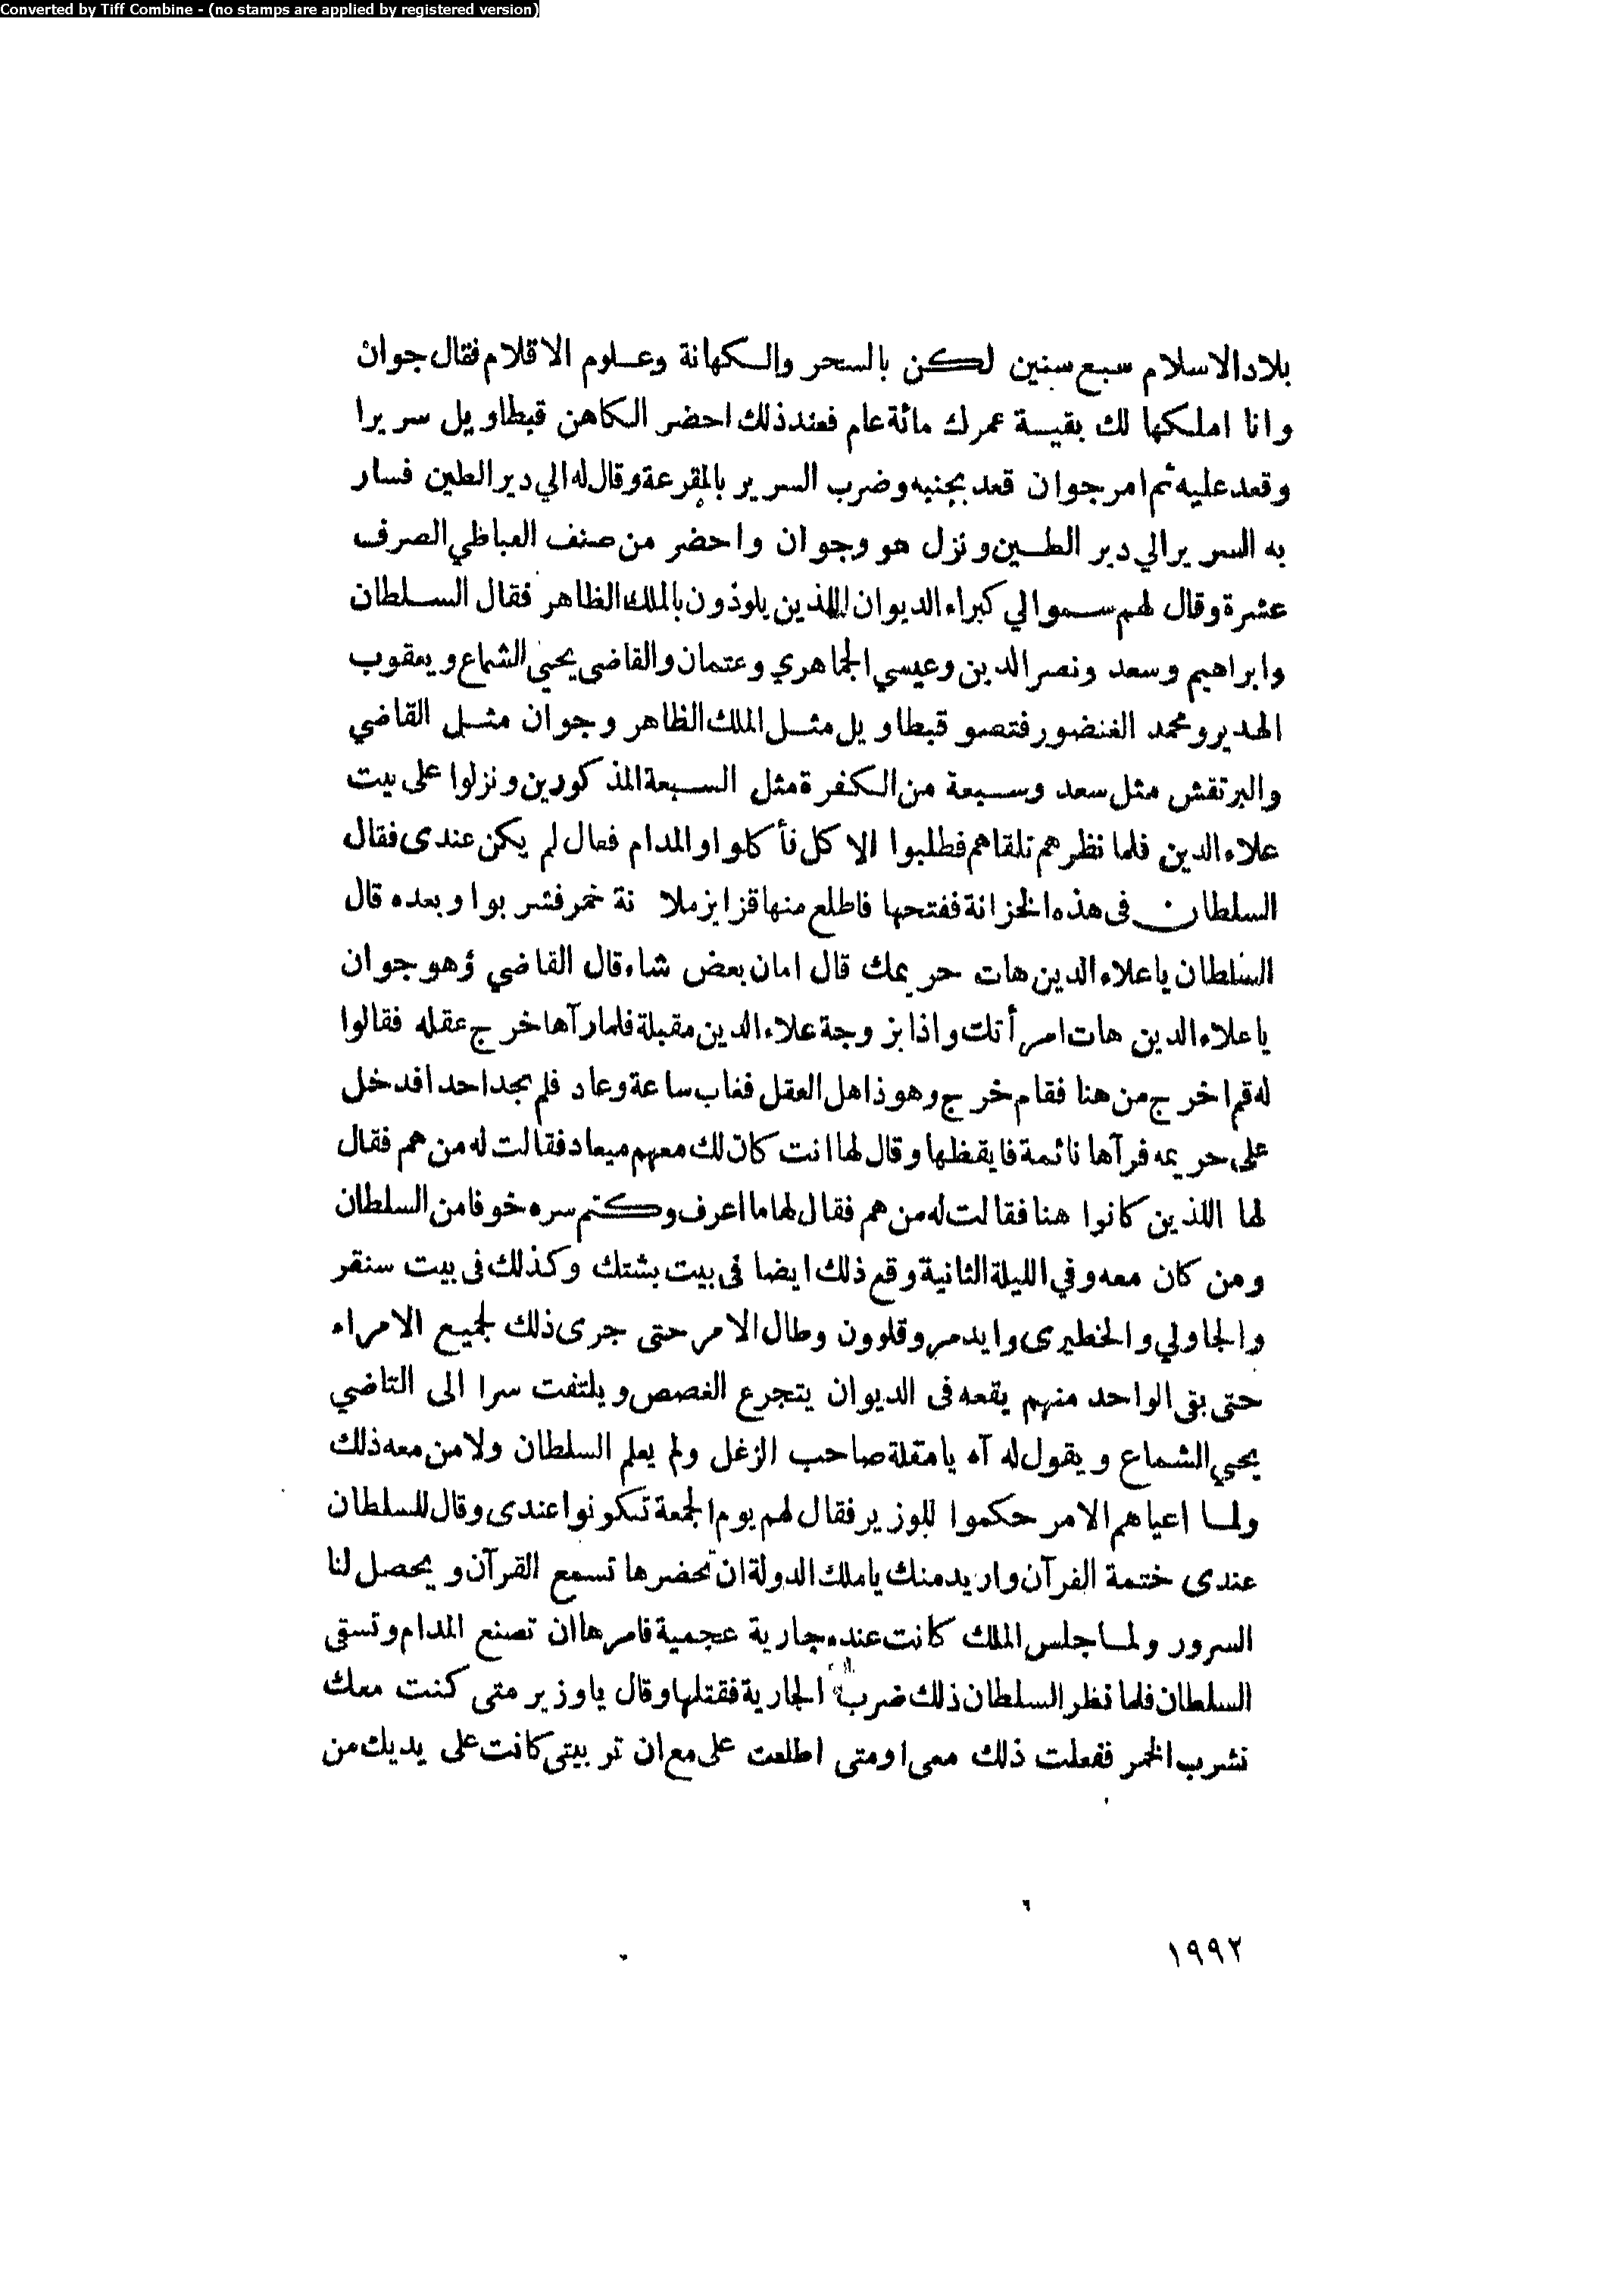 Converted by Tiff Combine - (no stamps are applied by registered version)
بلاد الاسلام سبع سنين لكن بالسحر والكهانة وعلوم الاقلام فقال جوان
وانا املكها لك بقية عمرك مائة عام فعند ذلك احضر الكاهن قبطاويل سريرا
وقعد عليه ثم امر جوان قعد بجنبه وضرب السرير بالمقرعة وقال له الي دير الطين فسار
به السرير الي دير الطين ونزل هو وجوان واحضر من صنف العباظي الصرف
عشرة وقال لهم سموا لي كبراء الديوان اللذين يلوذون بالملك الظاهر فقال السلطان
وابراهيم وسعد ونصر الدين وعيسي الجماهري وعتمان والقاضي يحيي الشماع ويعقوب
الهديرو محمد الغنضور فتصو قبطاويل مثل الملك الظاهر وجوان مثل القاضي
والبرتقش مثل سعد وسبعة من الكفرة مثل السبعة المذكورين ونزلوا على بيت
علاء الدين فلما نظرهم تلقاهم فطلبوا الاكل فأكلوا والمدام فعال لم يكن عندى فقال
السلطان فى هذه الخزانة ففتحها فاطلع منها قزايز ملانة خمر فشربوا وبعده قال
السلطان يا علاء الدين هات حريمك قال امان بعض شاء قال القاضي ؤهو جوان
يا علاء الدين هات امرأتك واذا بزوجة علاء الدين مقبلة فلما رآها خرج عقله فقالوا
له قم اخرج من هنا فقام خرج وهو ذاهل العقل فغاب ساعة وعاد فلم يجد احدا فدخل
على حريمه فرآها نائمة فايقظها وقال لها انت كان لك معهم ميعاد فقالت له من هم فقال
لها اللذين كانوا هنا فقالت له من هم فقال لها ما اعرف وكتم سره خوفا من السلطان
ومن كان معه وفي الليلة الثانية وقع ذلك ايضا فى بيت بشتك وكذلك فى بيت سنقر
والجاولي والخطيرى وايدمر وقلوون وطال الامر حتى جرى ذلك لجميع الامراء
حتى بقى الواحد منهم يقعه فى الديوان يتجرع الغصص ويلتفت سرا الى التاضي
يحيي الشماع ويقول له آه يا مقلة صاحب الزغل ولم يعلم السلطان ولا من معه ذلك
ولما اعياهم الامر حكموا للوزير فقال لهم يوم الجمعة تكونوا عندى وقال للسلطان
عندى ختمة القرآن واريد منك يا ملك الدولة ان تحضرها تسمع القرآن ويحصل لنا
السرور ولما جلس الملك كانت عنده جارية عجمية فامرها ان تصنع المدام وتسقى
السلطان فلما نظر السلطان ذلك ضرب الجارية فقتلها وقال يا وزير متى كنت معك
نشرب الخمر ففعلت ذلك معى اومتى اطلعت على مع ان تربيتى كانت على يديك من
١٩٩٢